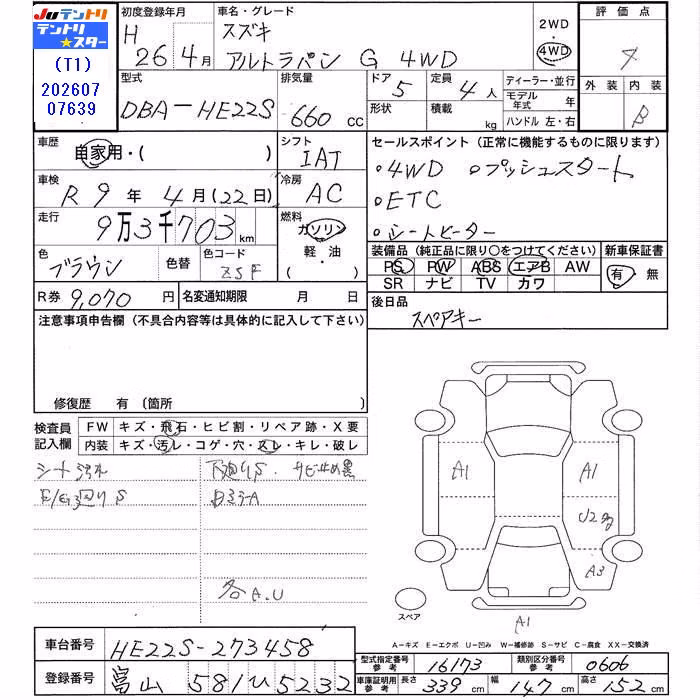 Juテントリ
テントリ★スター
(T1)
202607
07639
初度登録年月
H 26 4月
車名・グレード
スズキ
アルトラパン G 4WD
2WD
・
4WD
評価点
4
外装 内装
B
型式
DBA-HE22S
排気量
660 CC
ドア
5
定員
4人
形状
積載
kg
ディーラー・並行
モデル年式 年
ハンドル 左・右
車歴
自家用・( )
シフト
IAT
車検
R 9年 4月(22日)
冷房
AC
走行
9万3千703km
燃料
ガソリン
軽・油
( )
色
ブラウン
色替
色コード
ZSF
R券 9,070円
名変通知期限 月 日
セールスポイント (正常に機能するものに限ります)
•4WD •プッシュスタート
•ETC
•シートヒーター
装備品(純正品に限り〇をつけてください)
PS PW ABS エアB AW
SR ナビ TV カワ
新車保証書
有 無
後日品
スペアキー
注意事項申告欄(不具合内容等は具体的に記入して下さい)
修復歴 有(箇所
検査員記入欄
FW キズ・飛石・ヒビ割・リペア跡・X要
内装 キズ・汚レ・コゲ・穴・スレ・キレ・破レ
シート汚れ
下廻りS・サビ止め黒
E/G廻りS
各A.U
A1
A1
U2
A3
A1
スペア
A-キズ E-エクボ U-凹み W-補修跡 S-サビ C-腐食 XX-交換済
車台番号 HE22S-273458
登録番号 富山 581 ひ 5232
型式指定番号参考 16173
類別区分番号参考 0606
車庫証明用参考 長さ 339cm 幅 147cm 高さ 152cm